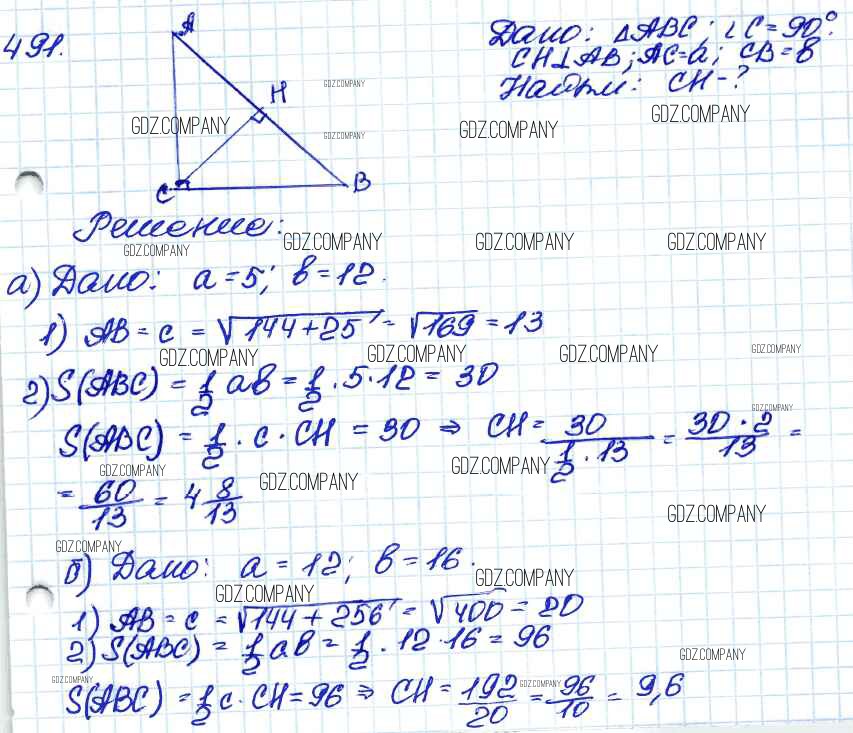 491.
A
H
C
B
Дано: △ABC; ∠C=90°.
CH⊥AB; AC=a; CB=в
Найти: CH-?
GDZ.COMPANY
GDZ.COMPANY
GDZ.COMPANY
GDZ.COMPANY
GDZ.COMPANY
Решение:
GDZ.COMPANY GDZ.COMPANY GDZ.COMPANY GDZ.COMPANY
а) Дано: a=5; в=12.
1) AB = c = √(144+25) = √169 = 13
GDZ.COMPANY GDZ.COMPANY GDZ.COMPANY GDZ.COMPANY
2) S(ABC) = 1/2 aв = 1/2 · 5 · 12 = 30
GDZ.COMPANY
S(ABC) = 1/2 · c · CH = 30 ⇒ CH = 30/(1/2 · 13) = (30 · 2)/13 =
GDZ.COMPANY GDZ.COMPANY GDZ.COMPANY
= 60/13 = 4 8/13
GDZ.COMPANY
GDZ.COMPANY
б) Дано: a = 12; в = 16.
GDZ.COMPANY GDZ.COMPANY
1) AB = c = √(144 + 256) = √400 = 20
2) S(ABC) = 1/2 aв = 1/2 · 12 · 16 = 96
GDZ.COMPANY
GDZ.COMPANY GDZ.COMPANY
S(ABC) = 1/2 c · CH = 96 ⇒ CH = 192/20 = 96/10 = 9,6